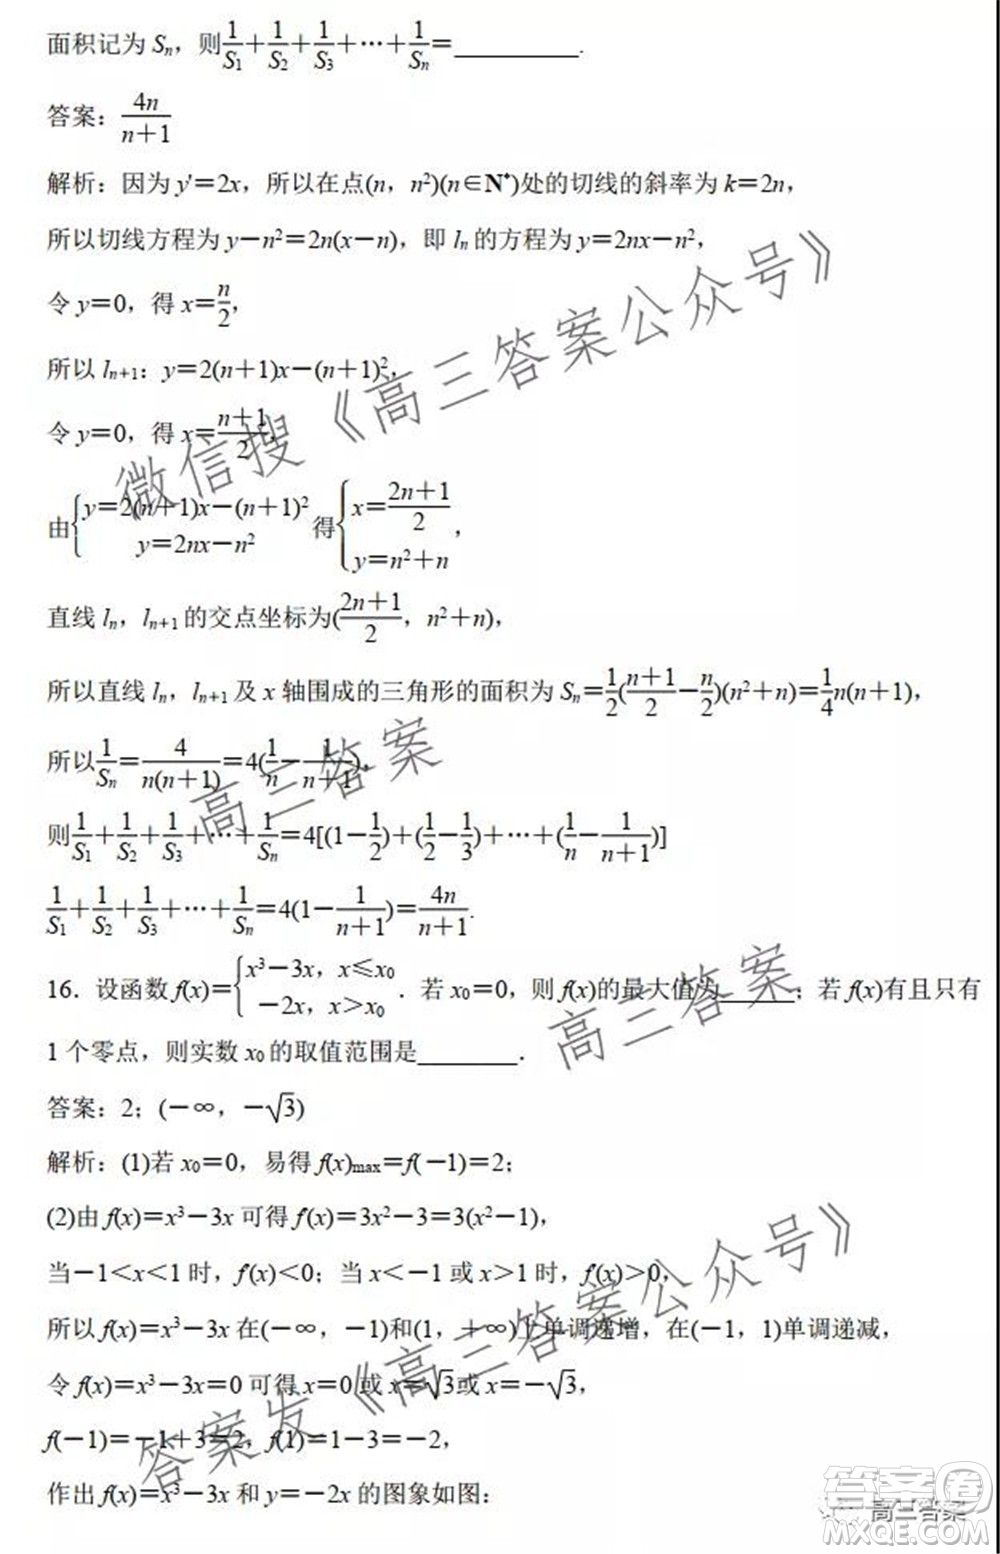 面积记为 Sₙ，则1/S₁+1/S₂+1/S₃+…+1/Sₙ=________.
答案：4n/(n+1)
解析：因为 y′=2x，所以在点(n，n²)(n∈N*)处的切线的斜率为 k=2n，
所以切线方程为 y−n²=2n(x−n)，即 lₙ 的方程为 y=2nx−n²，
令 y=0，得 x=n/2，
所以 lₙ₊₁：y=2(n+1)x−(n+1)²，
令 y=0，得 x=(n+1)/2，
由{y=2(n+1)x−(n+1)² y=2nx−n² 得{x=(2n+1)/2 y=n²+n，
直线 lₙ，lₙ₊₁ 的交点坐标为((2n+1)/2，n²+n)，
所以直线 lₙ，lₙ₊₁ 及 x 轴围成的三角形的面积为 Sₙ=1/2((n+1)/2−n/2)(n²+n)=1/4n(n+1)，
所以1/Sₙ=4/(n(n+1))=4(1/n−1/(n+1))，
则1/S₁+1/S₂+1/S₃+…+1/Sₙ=4[(1−1/2)+(1/2−1/3)+…+(1/n−1/(n+1))]
1/S₁+1/S₂+1/S₃+…+1/Sₙ=4(1−1/(n+1))=4n/(n+1).
16．设函数 f(x)={x³−3x，x≤x₀ −2x，x>x₀．若 x₀=0，则 f(x)的最大值为______；若 f(x)有且只有
1 个零点，则实数 x₀ 的取值范围是________．
答案：2；(−∞，−√3)
解析：(1)若 x₀=0，易得 f(x)max=f(−1)=2；
(2)由 f(x)=x³−3x 可得 f′(x)=3x²−3=3(x²−1)，
当−1<x<1 时，f′(x)<0；当 x<−1 或 x>1 时，f′(x)>0，
所以 f(x)=x³−3x 在(−∞，−1)和(1，+∞)上单调递增，在(−1，1)单调递减，
令 f(x)=x³−3x=0 可得 x=0 或 x=√3或 x=−√3，
f(−1)=−1+3=2，f(1)=1−3=−2，
作出 f(x)=x³−3x 和 y=−2x 的图象如图：
微信搜《高三答案公众号》
高三答案
高三答案
答案发《高三答案公众号》
高三答案
答案圈
MXQE.COM